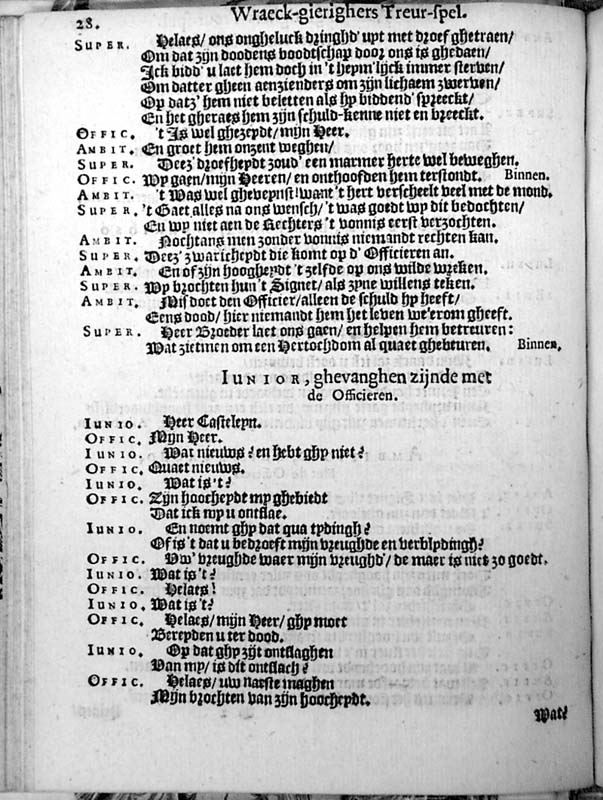 28. Wraeck-gierighers Treur-spel.
SUPER. Helaes/ ons ongheluck dringhd' upt met droef ghetraen/
Om dat zijn doodens boodtschap door ons is ghedaen/
Ick bidd' u laet hem doch in 't heym'lijck immer sterven/
Om datter gheen aenzienders om zijn lichaem zwerven/
Op datz' hem niet beletten als hy biddend' spreeckt/
En het gheraes hem zijn schuld-kenne niet en breeckt.
OFFIC. 't Is wel ghezeydt/ mijn Heer.
AMBIT. En groet hem onzent weghen/
SUPER. Deez' droefheydt zoud' een marmer herte wel beweghen.
OFFIC. Wy gaen/ mijn Heeren/ en onthoofden hem terstondt. Binnen.
AMBIT. 't Was wel gheveynst! want 't hert verscheelt veel met de mond.
SUPER. 't Gaet alles na ons wensch/ 't was goedt wy dit bedochten/
En wy niet aen de Rechters 't vonnis eerst verzochten.
AMBIT. Nochtans men zonder vonnis niemandt rechten kan.
SUPER. Deez' zwaricheydt die komt op d' Officieren an.
AMBIT. En of zijn hoogheydt 't zelfde op ons wilde wreken.
SUPER. Wy brochten hun 't Signet/ als zyne willens teken.
AMBIT. Mis doet den Officier/ alleen de schuld hy heeft/
Eens dood/ hier niemandt hem het leven we'erom gheeft.
SUPER. Heer Broeder laet ons gaen/ en helpen hem betreuren:
Wat zietmen om een Hertochdom al quaet ghebeuren. Binnen.
IUNIOR, ghevanghen zijnde met
de Officieren.
IUNIO. Heer Casteleyn.
OFFIC. Mijn Heer.
IUNIO. Wat nieuws? en hebt ghy niet?
OFFIC. Quaet nieuws.
IUNIO. Wat is't?
OFFIC. Zijn hoocheydt my ghebiedt
Dat ick my u ontslae.
IUNIO. En noemt ghy dat qua tydingh?
Of is 't dat u bedroeft mijn vreughde en verblydingh?
OFFIC. Uw' vreughde waer mijn vreughd'/ de maer is niet zo goedt.
IUNIO. Wat is't?
OFFIC. Helaes!
IUNIO. Wat is't?
OFFIC. Helaes/ mijn Heer/ ghy moet
Bereyden u ter dood.
IUNIO. Op dat ghy zijt ontslaghen
Van my/ is dit ontslach?
OFFIC. Helaes/ uw naeste maghen
Mijn brochten van zijn hoocheydt.
Wat?